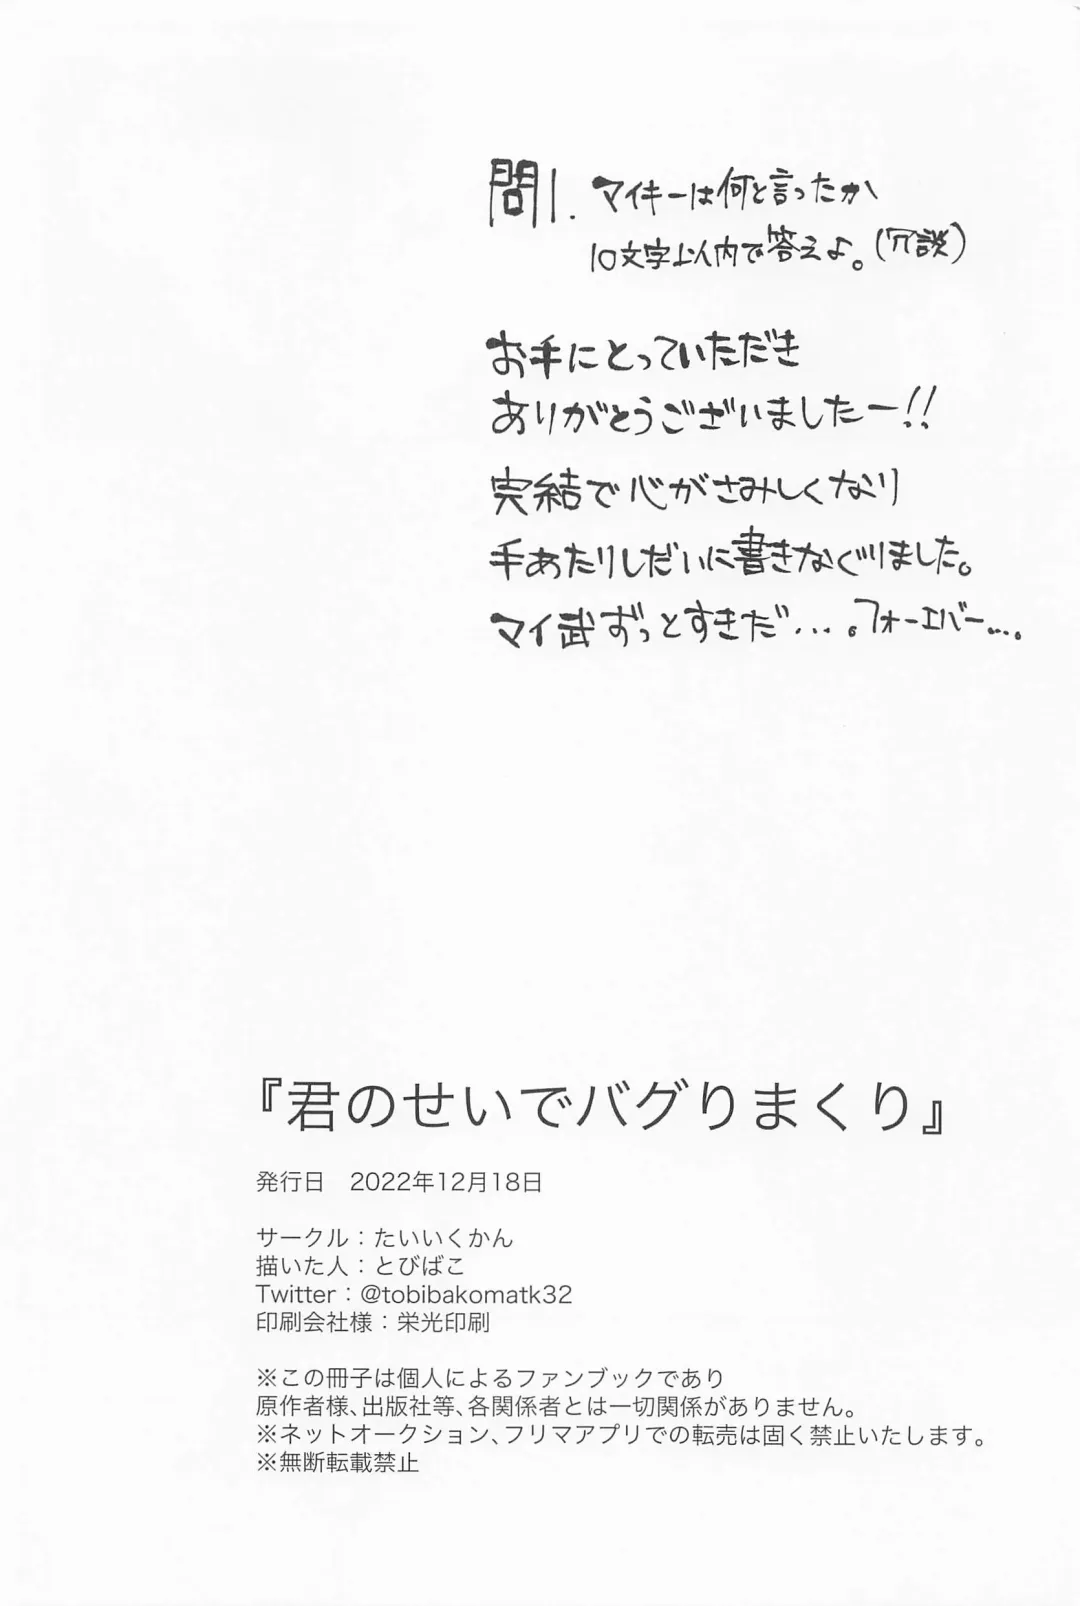 問1. マイキーは何と言ったか
10文字以内で答えよ。(冗談)
お手にとっていただき
ありがとうございましたー!!
完結で心がさみしくなり
手あたりしだいに書きなぐりました。
マイ武ずっとすきだ...。フォーエバー...。
『君のせいでバグりまくり』
発行日 2022年12月18日
サークル：たいいくかん
描いた人：とびばこ
Twitter：@tobibakomatk32
印刷会社様：栄光印刷
※この冊子は個人によるファンブックであり
原作者様、出版社等、各関係者とは一切関係がありません。
※ネットオークション、フリマアプリでの転売は固く禁止いたします。
※無断転載禁止